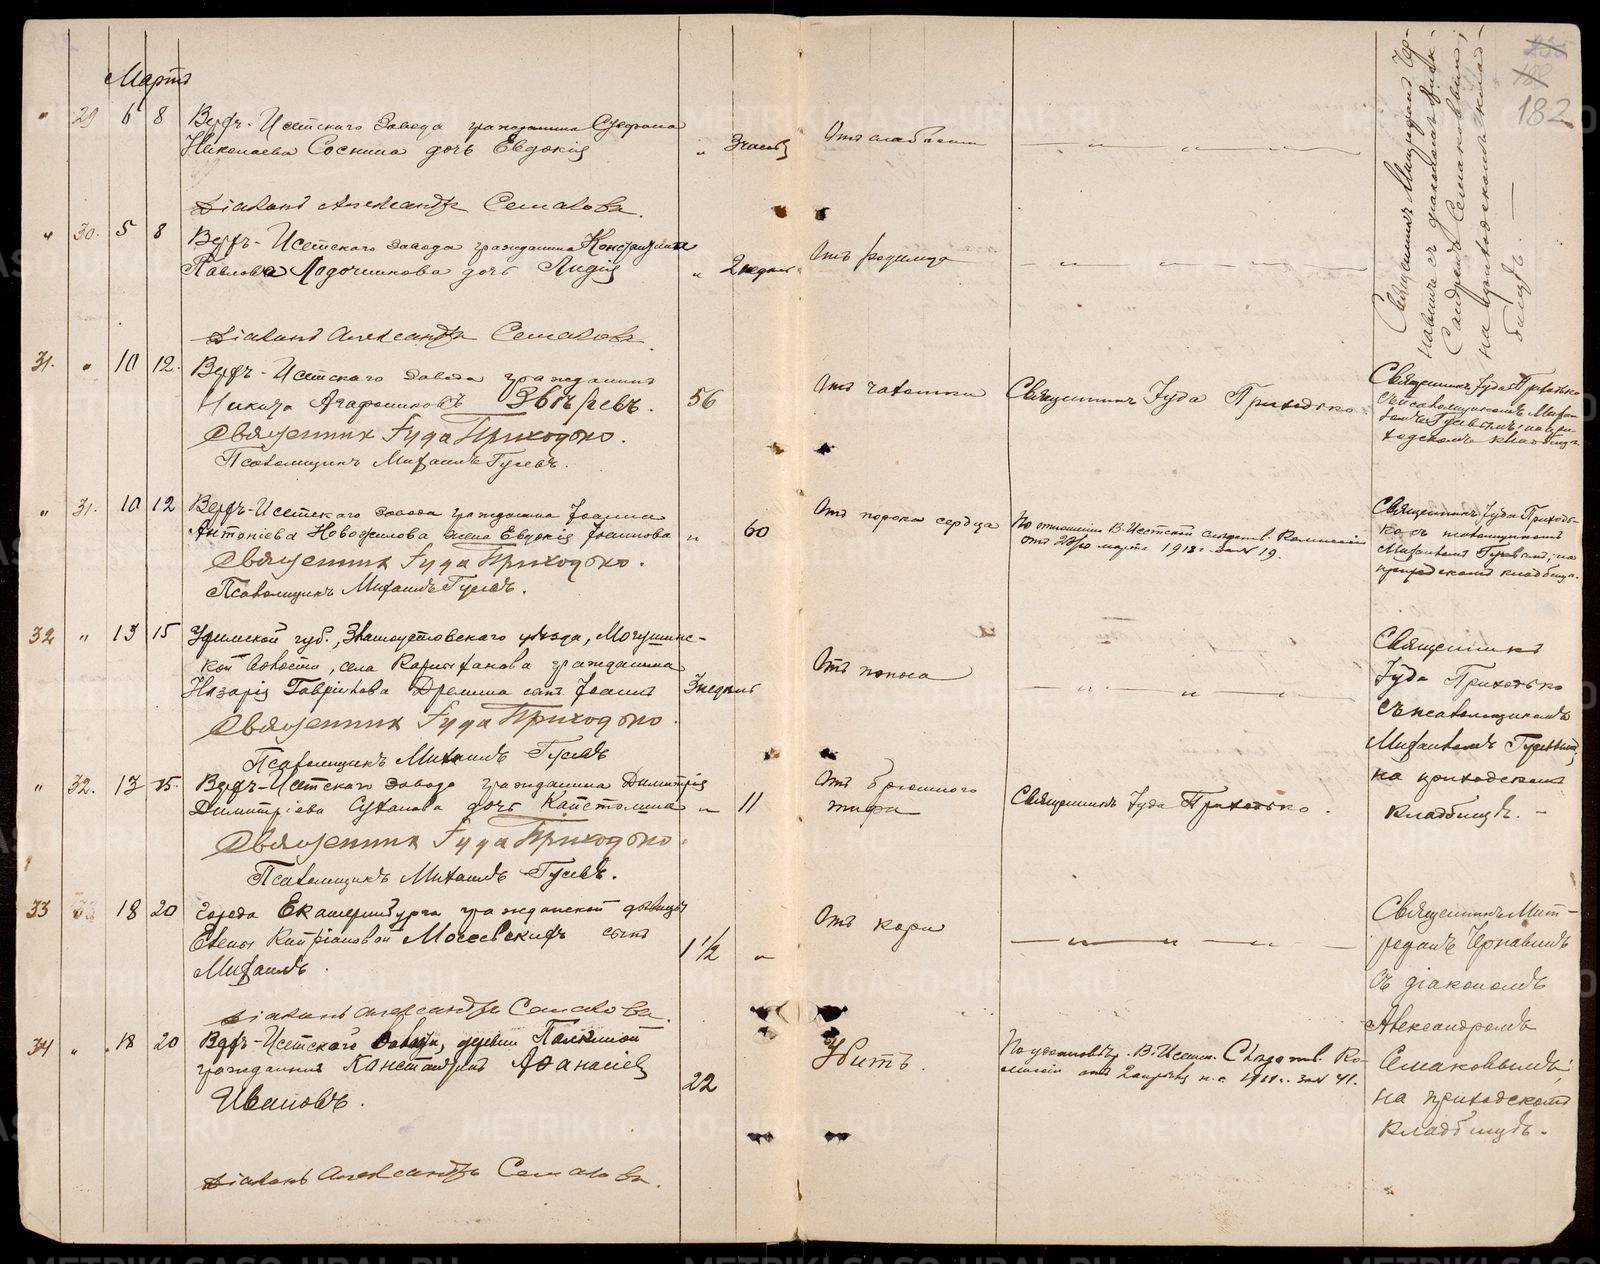 182
Мартъ
" 29 6 8 Верхъ-Исетскаго Завода гражданина Стефана
Николаева Соснина дочь Евдокія " 3 часовъ Отъ слабости — " — " —
Діаконъ Александръ Семаковъ.
" 30. 5 8 Верхъ-Исетскаго завода гражданина Константина
Павлова Лодочникова дочь Лидія " 2 недѣль Отъ родимца — " — " —
Діаконъ Александръ Семаковъ.
Священникъ Митрофанъ Чер-
навинъ съ діакономъ Алек-
сандромъ Семаковымъ;
на приходскомъ клад-
бищѣ. —
31. " 10 12. Верхъ-Исетскаго завода гражданинъ
Никита Агафониковъ Звѣревъ. 56 Отъ чахотки Священникъ Іуда Приходько
Священникъ Іуда Приходько.
Псаломщикъ Михаилъ Гусевъ.
Священникъ Іуда Приходько
съ псаломщикомъ Михаи-
ломъ Гусевымъ; на при-
ходскомъ кладбищѣ.
" 31. 10 12 Верхъ-Исетскаго завода гражданина Іоанна
Антоніева Новожилова жена Евдокія Іоаннова " 60 Отъ порока сердца По отношенію В.-Исетской следств. Комиссіи
отъ 28/10 марта 1918 г. за № 19.
Священникъ Іуда Приходько.
Псаломщикъ Михаилъ Гусевъ.
Священникъ Іуда Приходь-
ко съ псаломщикомъ
Михаиломъ Гусевымъ; на
приходскомъ кладбищѣ.
32 " 13 15 Уфимской губ., Златоустовскаго уѣзда,
кой волости, села гражданина
Назарія Гаврилова сынъ Іоаннъ 3 недѣль Отъ поноса — " — " —
Священникъ Іуда Приходько.
Псаломщикъ Михаилъ Гусевъ
" 32. 13 15. Верхъ-Исетскаго завода гражданина Димитрія
Димитріева Суханова дочь Капитолина " 11 Отъ брюшного
тифа Священникъ Іуда Приходько.
Священникъ Іуда Приходько.
Псаломщикъ Михаилъ Гусевъ.
Священникъ
Іуда Приходько
съ псаломщикомъ
Михаиломъ Гусевымъ;
на приходскомъ
кладбищѣ. —
33 33 18 20 Города Екатеринбурга гражданской дѣвицы
Елены Кипріановой сынъ
Михаилъ. 1½ " Отъ кори — " — " —
Діаконъ Александръ Семаковъ.
34 " 18 20 Верхъ-Исетскаго завода, деревни Палкиной
гражданинъ Константинъ Аѳанасіевъ
Ивановъ. 22 Убитъ. В.-Исетск. Слѣдств. Ко-
миссіи отъ 2 апрѣля н.с. 1918 г. за № 41.
Діаконъ Александръ Семаковъ.
Священникъ Мит-
рофанъ Чернавинъ
съ діакономъ
Александромъ
Семаковымъ;
на приходскомъ
кладбищѣ.
METRIKI.GASO-URAL.RU